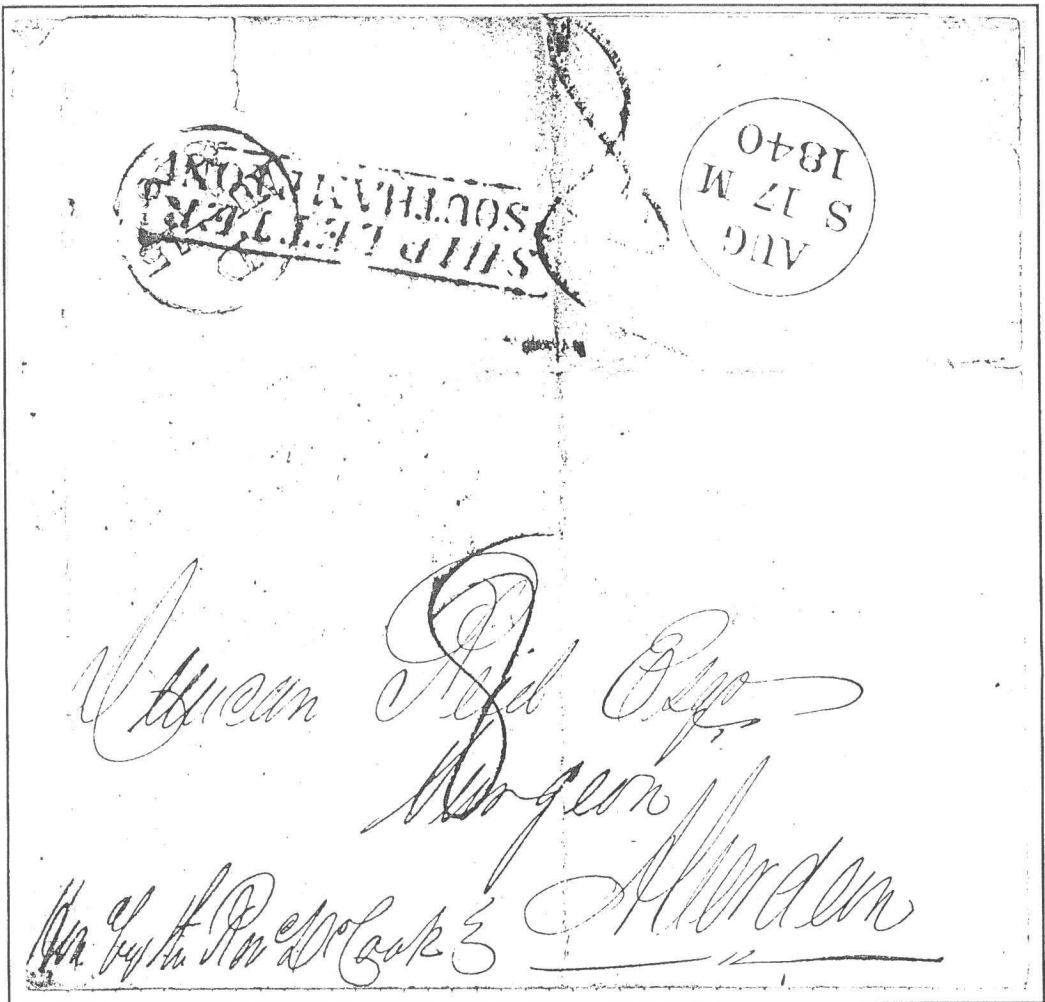 SHIP LETTER
SOUTHAMPTON
AUG
S 17 M
1840
8
Duncan Reid Esqr
Surgeon
Aberdeen
by the Revd Dr Cook